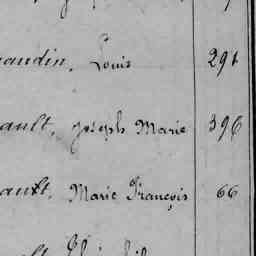 audin, Louis 291
ault, Joseph Marie 396
ault, Marie François 66